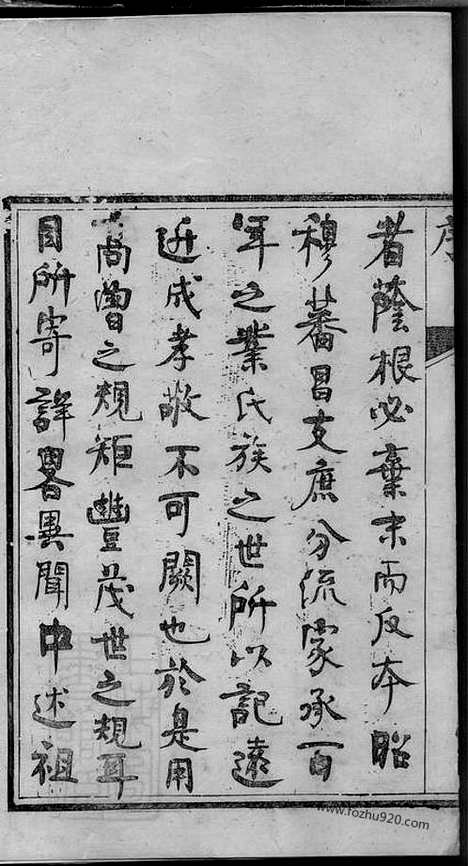 序
者蔭根必棄末而反本昭
穆蕃昌支庶分流家承百
年之業氏族之世所以記遠
近成孝敬不可闕也於是用
尚曾之規矩豐茂世之規耳
目所寄詳畧異聞申述祖
www.fozhu920.com